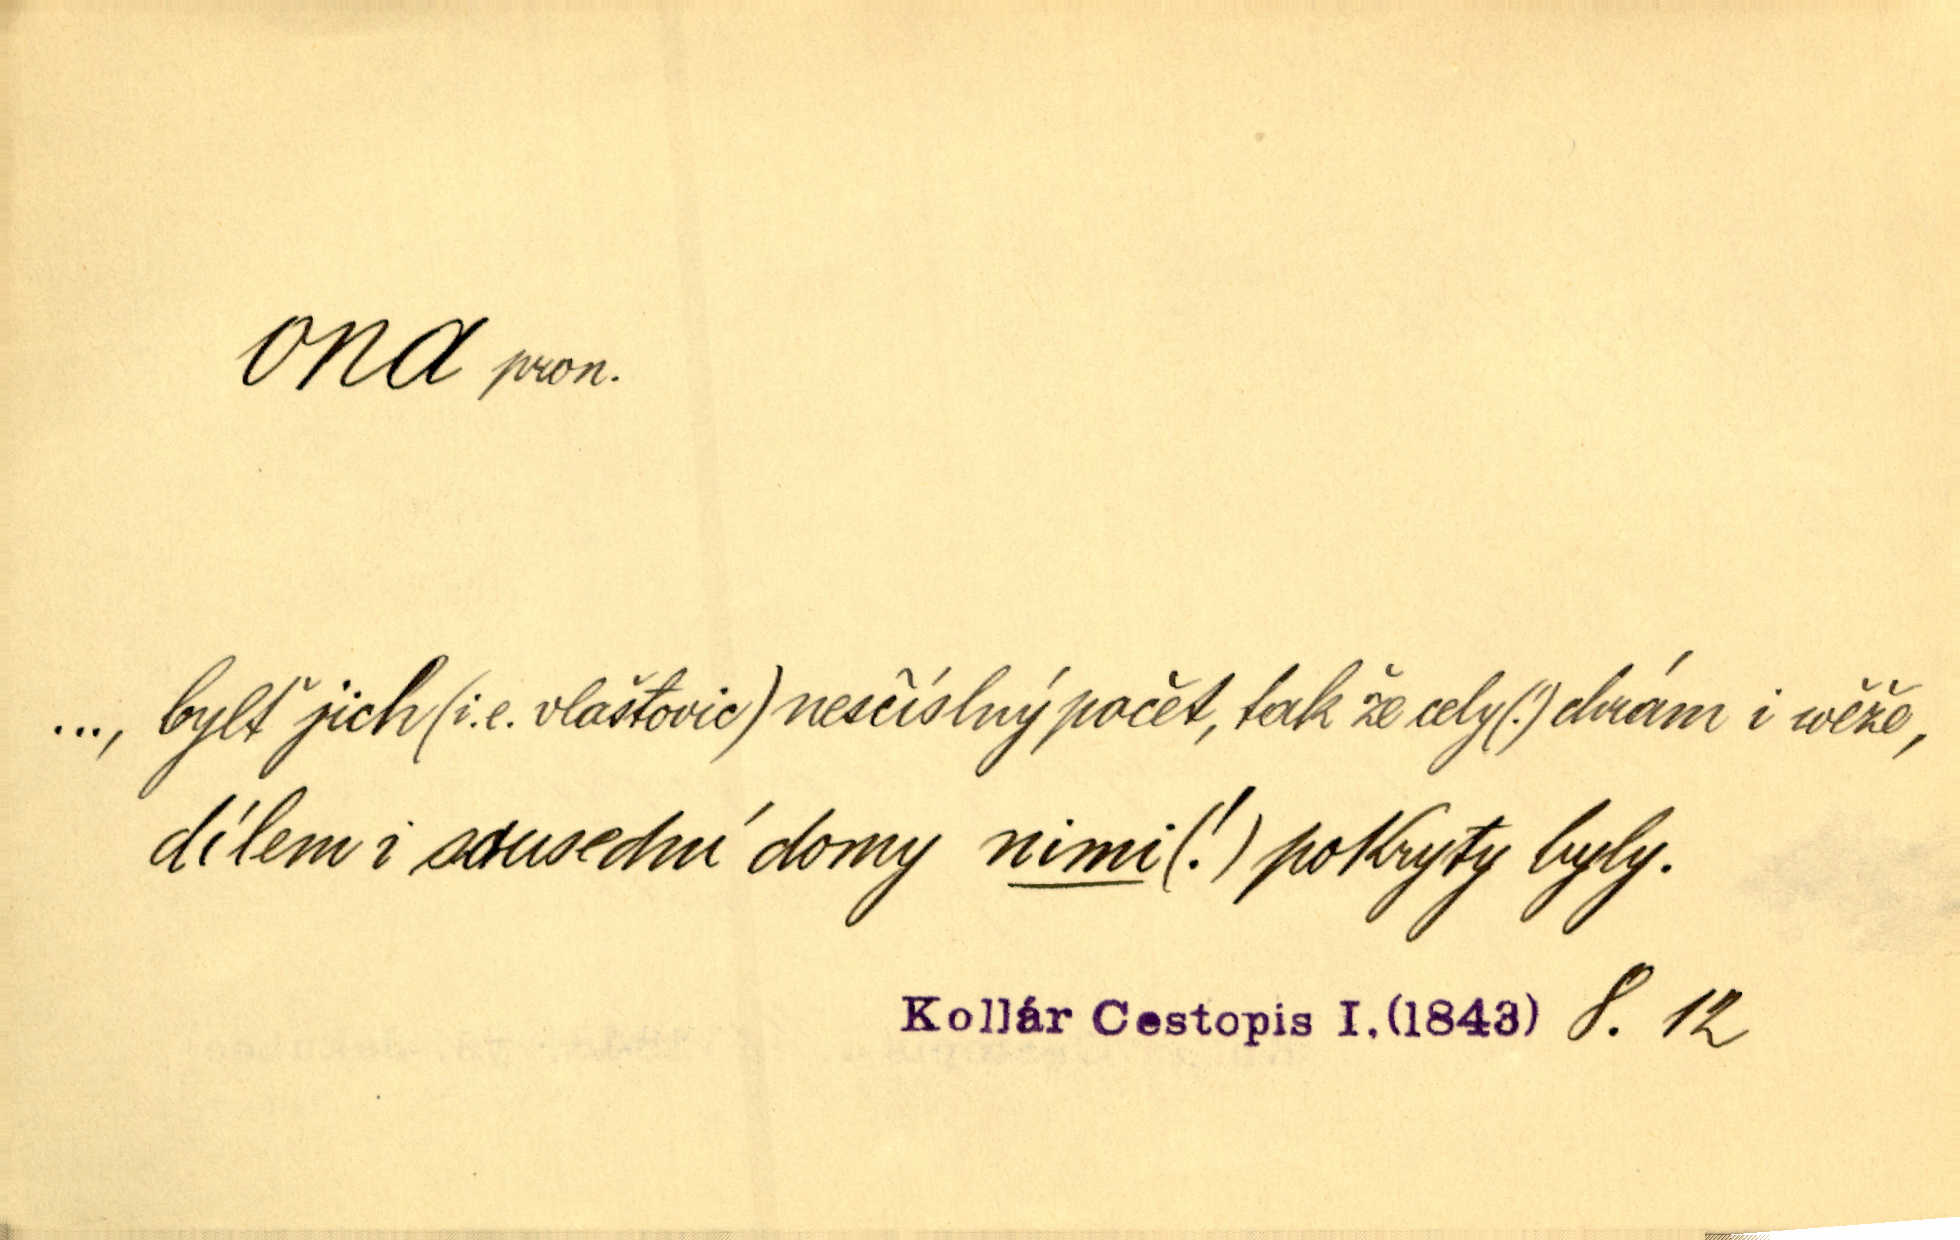 ona pron.
..., bylť jich (i.e. vlaštovic) nesčíslný počet, tak že cely(!) chrám i wěže,
dílem i sousední domy nimi(!) pokryty byly.
Kollár Cestopis I.(1843) 8. 12